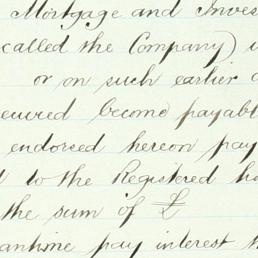 Mortgage and Inves
called the Company) i
or on such earlier d
ecured become payabl
endorsed hereon pay
to the Registered ho
the sum of £
eantime pay interest th